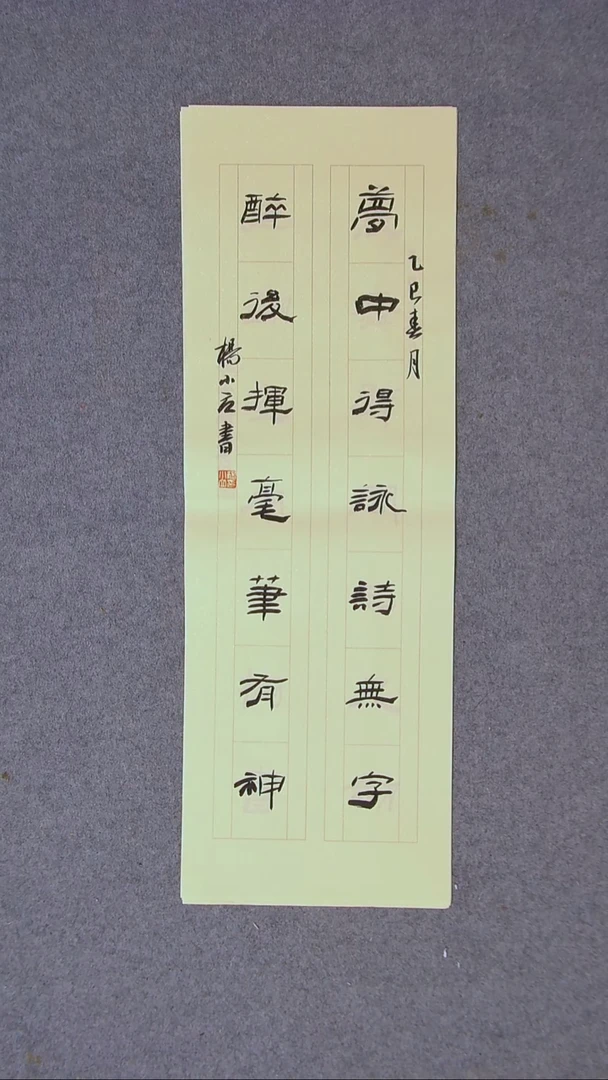 乙巳春月
夢中得詠詩無字
醉後揮毫筆有神
楊小石書